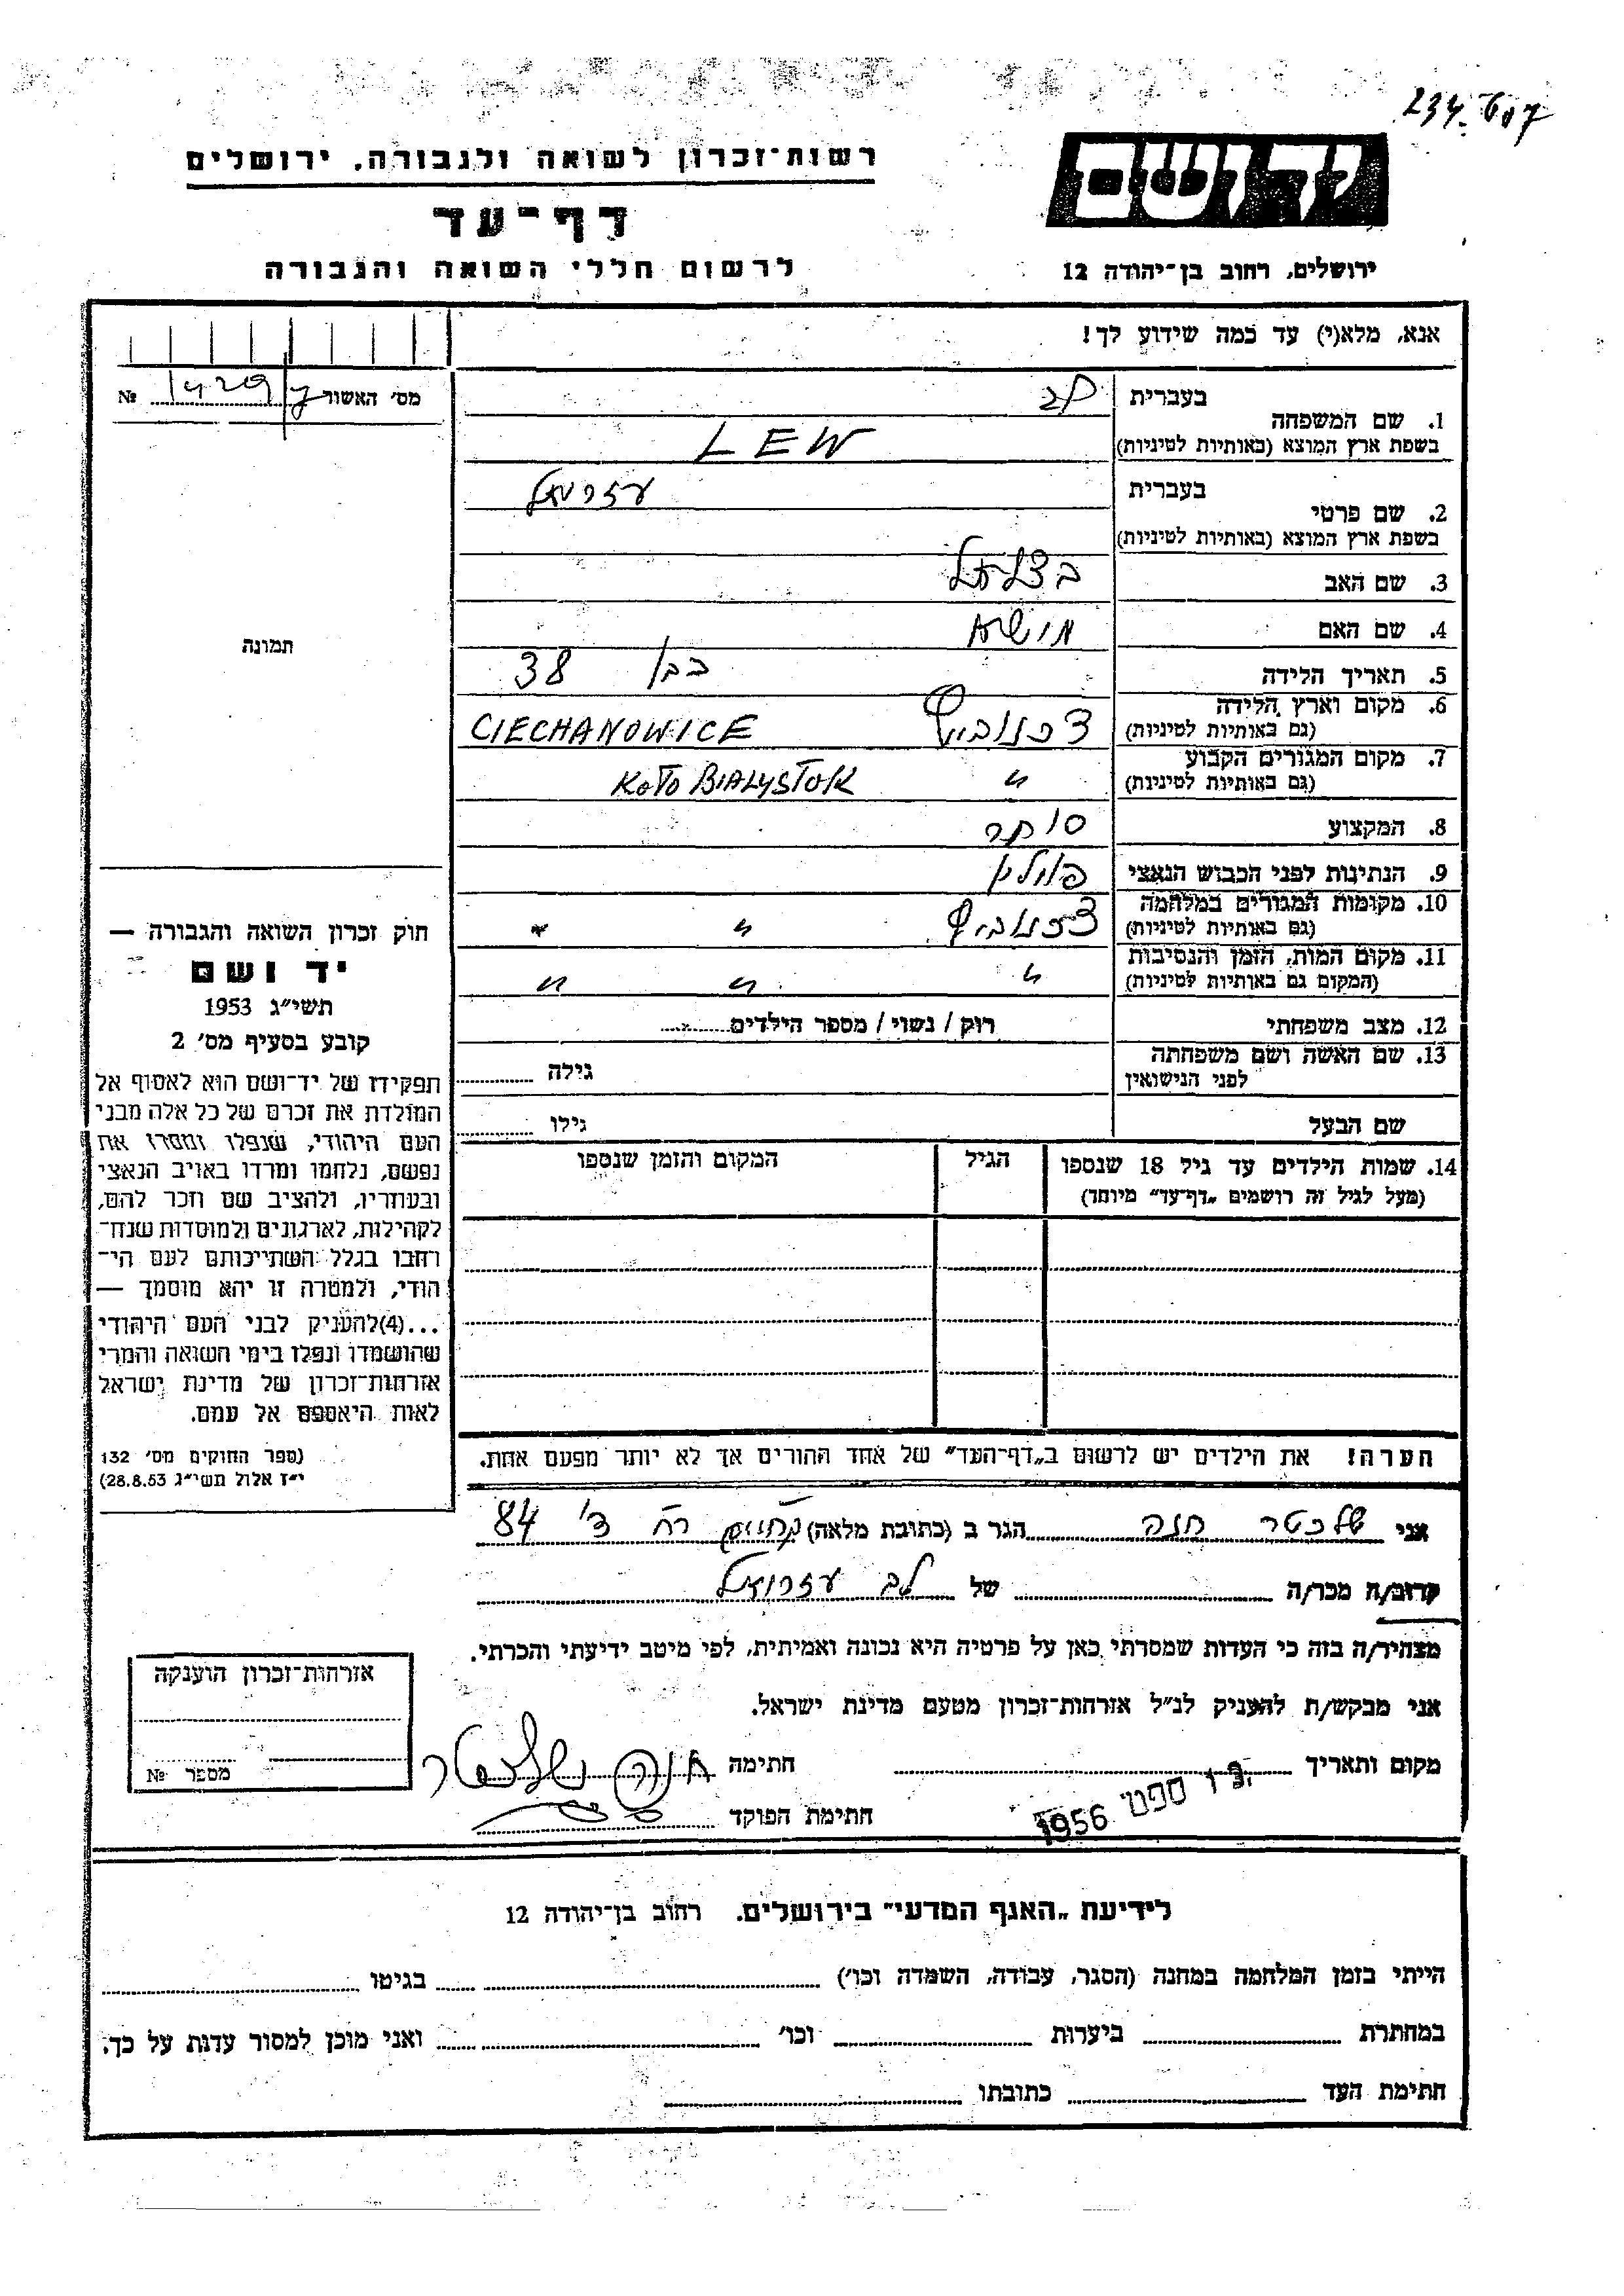 234. 607
יד ושם
רשות־זכרון לשואה ולגבורה, ירושלים
דף־עד
לרשום חללי השואה והגבורה
ירושלים, רחוב בן־יהודה 12
אנא, מלא(י) עד כמה שידוע לך!
מס' האשור 1429 №
בעברית לב
1. שם המשפחה
בשפת ארץ המוצא (באותיות לטיניות) LEW
בעברית עזריאל
2. שם פרטי
בשפת ארץ המוצא (באותיות לטיניות)
3. שם האב בצלאל
4. שם האם מושא
5. תאריך הלידה בבן 38
6. מקום וארץ הלידה
(גם באותיות לטיניות) CIECHANOWICE
7. מקום המגורים הקבוע
(גם באותיות לטיניות) " KOŁO BIALYSTOK
8. המקצוע סוחר
9. הנתינות לפני הכבוש הנאצי פולין
10. מקומות המגורים במלחמה
(גם באותיות לטיניות) " "
11. מקום המות, הזמן והנסיבות
(המקום גם באותיות לטיניות) " " "
12. מצב משפחתי רוק / נשוי / מספר הילדים
13. שם האשה ושם משפחתה
לפני הנישואין גילה
שם הבעל גילו
14. שמות הילדים עד גיל 18 שנספו הגיל המקום והזמן שנספו
(מעל לגיל זה רושמים „דף־עד" מיוחד)
תמונה
חוק זכרון השואה והגבורה —
יד ושם
תשי"ג 1953
קובע בסעיף מס' 2
תפקידו של יד־ושם הוא לאסוף אל
המולדת את זכרם של כל אלה מבני
העם היהודי, שנפלו ומסרו את
נפשם, נלחמו ומרדו באויב הנאצי
ובעוזריו, ולהציב שם וזכר להם,
לקהילות, לארגונים ולמוסדות שנח־
רבו בגלל השתייכותם לעם הי־
הודי, ולמטרה זו יהא מוסמך —
...(4)להעניק לבני העם היהודי
שהושמדו ונפלו בימי השואה והמרי
אזרחות־זכרון של מדינת ישראל
לאות היאספם אל עמם.
(ספר החוקים מס' 132
י"ז אלול תשי"ג 28.8.53)
הערה! את הילדים יש לרשום ב„דף־העד" של אחד ההורים אך לא יותר מפעם אחת.
אני שלכטר חנה הגר ב (כתובת מלאה) רח ד' 84
קרוב/ה מכר/ה של לב עזריאל
מצהיר/ה בזה כי העדות שמסרתי כאן על פרטיה היא נכונה ואמיתית, לפי מיטב ידיעתי והכרתי.
אני מבקש/ת להעניק לנ"ל אזרחות־זכרון מטעם מדינת ישראל.
מקום ותאריך ספט' 1956 חתימה חנה שלכטר
חתימת הפוקד
אזרחות־זכרון הוענקה
מספר №
לידיעת „האגף המדעי" בירושלים. רחוב בן־יהודה 12
הייתי בזמן המלחמה במחנה (הסגר, עבודה, השמדה וכו') בגיטו
במחתרת ביערות וכו' ואני מוכן למסור עדות על כך.
חתימת העד כתובתו